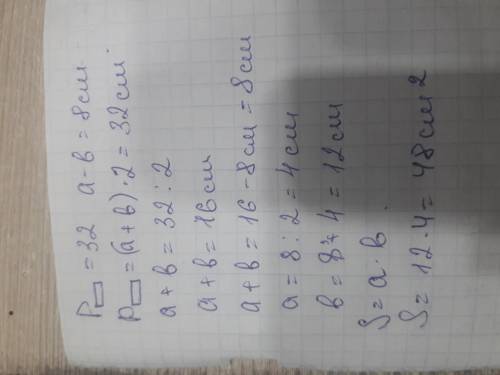 P▭ = 32 a-в = 8см
P▭ = (a+в)·2 = 32см
a+в = 32:2
a+в = 16см
a+в = 16-8см = 8см
a = 8:2 = 4см
в = 8+4 = 12см
S = a·в
S = 12·4 = 48см2